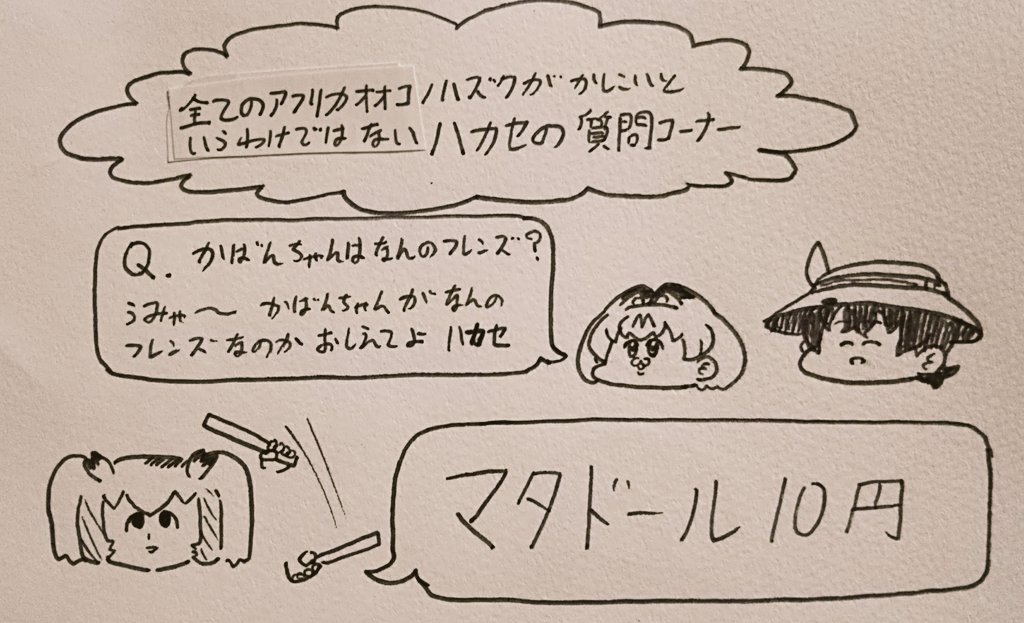 全てのアフリカオオコノハズクがかしこいと
いうわけではないハカセの質問コーナー
Q. かばんちゃんはなんのフレンズ?
うみゃ〜 かばんちゃんがなんの
フレンズなのかおしえてよ ハカセ
マタドール10円